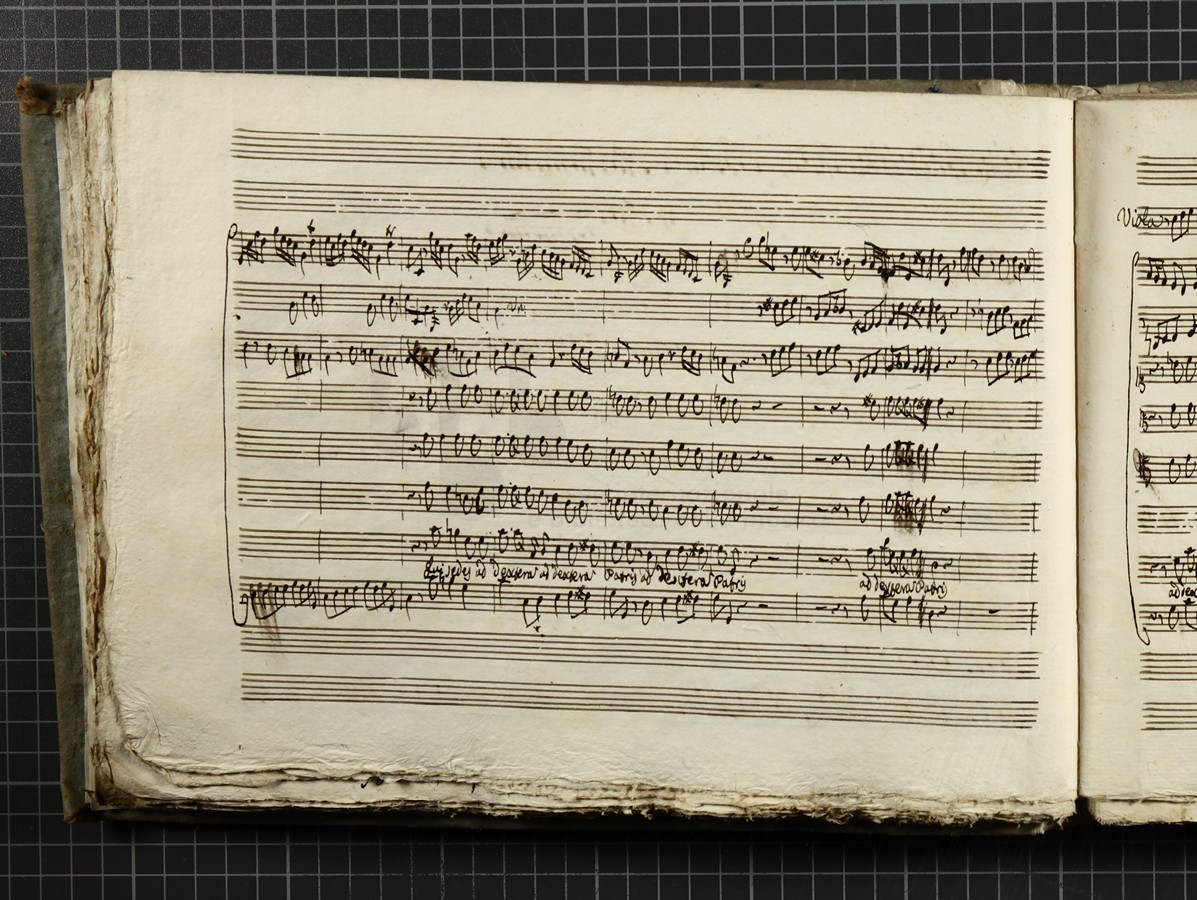 Qui sedes ad dextera ad dextera Patris ad dextera Patris
ad dextera Patris
Viola